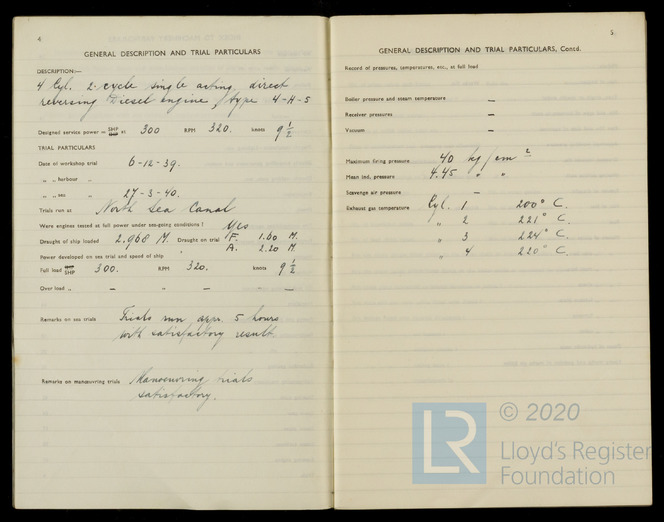 4
GENERAL DESCRIPTION AND TRIAL PARTICULARS
DESCRIPTION:—
4 Cyl. 2-cycle single acting direct
reversing Diesel engine, type 4-H-S
Designed service power = SHP at 300 RPM 320. knots 9 1/2
TRIAL PARTICULARS
Date of workshop trial 6-12-39.
„ „ harbour „
„ „ sea „ 27-3-40.
Trials run at North Sea Canal
Were engines tested at full power under sea-going conditions? Yes
Draught of ship loaded 2.968 M. Draught on trial F. 1.60 M.
A. 2.20 M
Power developed on sea trial and speed of ship
Full load SHP 300. RPM 320. knots 9 1/2
Over load „ – „ – „ –
Remarks on sea trials Trials run appr. 5 hours
with satisfactory result
Remarks on manœuvring trials Manoeuvring trials
satisfactory.
5
GENERAL DESCRIPTION AND TRIAL PARTICULARS, Contd.
Record of pressures, temperatures, etc., at full load
Boiler pressure and steam temperature –
Receiver pressures –
Vacuum –
Maximum firing pressure 40 kg/cm 2
Mean ind. pressure 4.45 „ „
Scavenge air pressure –
Exhaust gas temperature Cyl. 1 200° C.
„ 2 221° C.
„ 3 224° C.
„ 4 220° C.
LR © 2020
Lloyd's Register
Foundation